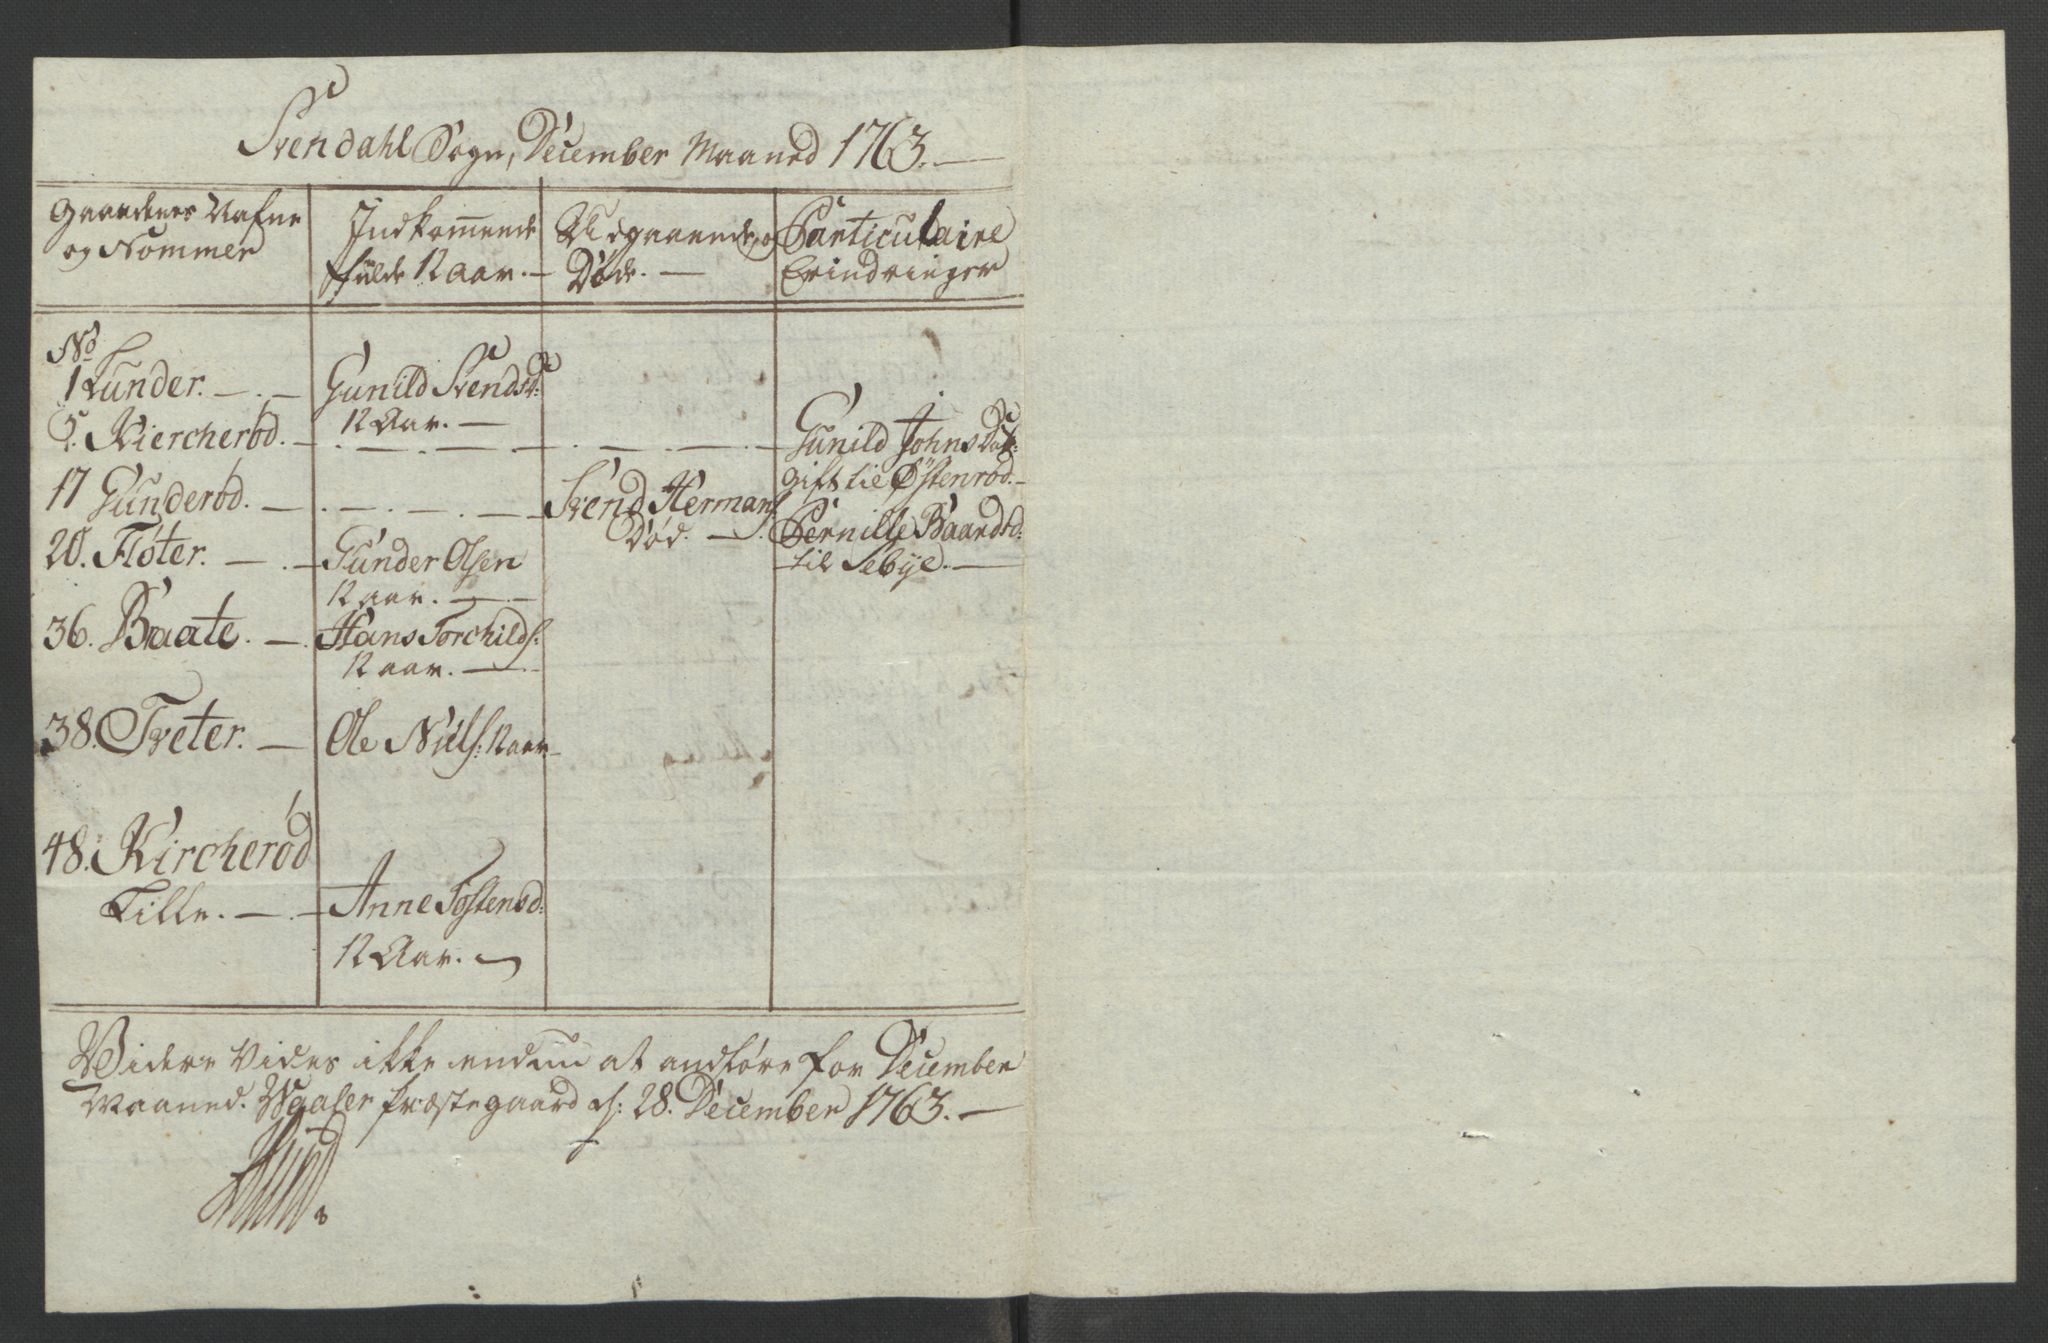 Svendahl Sogn, December Maaned 1763.
Gaardenes Nafne
og Nommer
Indkommende
fulde 12 Aar.
Udgaaende, og
Døde.
Particulaire
Erindringer
No
1 Lunder.
Gunild Svendsd:
12 Aar.
5. Kiercherød.
Gunild Johnsdat:
gift til Østenrød.
17 Gunderød.
Svend Hermans.
Død.
Pernille Baardsd:
til Sebye.
20. Fløter.
Gunder Olsen
12 aar.
36. Braate.
Hans Torchilds:
12 aar.
38. Tveter.
Ole Niels: 12 aar
48. Kircherød
Lille.
Anne Tostensd:
12 Aar.
Videre Vides ikke endnu at andføre for December
Maaned. Waaler præstegaard d: 28. December 1763.